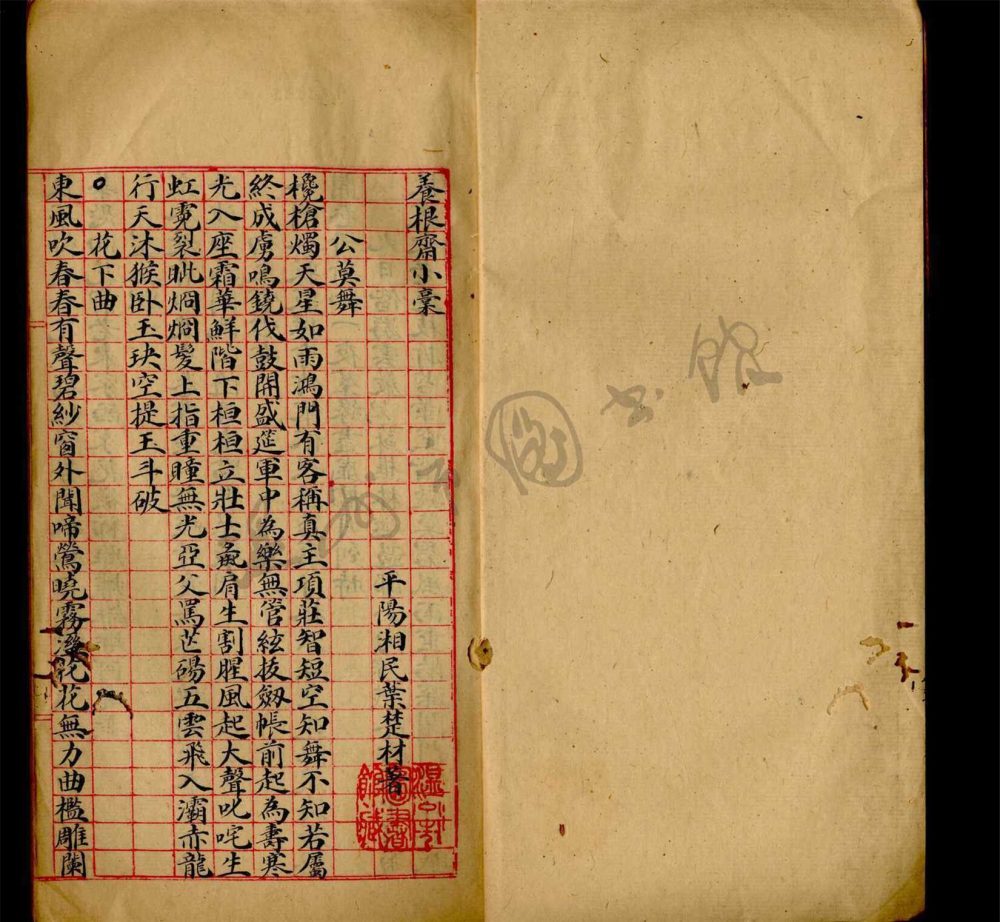 養根齋小稾
平陽湘民葉楚材著
公莫舞
欃槍燭天星如雨鴻門有客稱真主項莊智短空知舞不知若屬
終成虜鳴鐃伐鼓開盛筵軍中為樂無管絃拔劔帳前起為壽寒
光入座霜華鮮階下桓桓立壯士彘肩生割腥風起大聲叱咤生
虹霓裂眦烱烱髮上指重瞳無光亞父罵芒碭五雲飛入灞赤龍
行天沐猴卧玉玦空提玉斗破
花下曲
東風吹春春有聲碧紗窗外聞啼鶯曉霧花花無力曲檻雕闌
圖書館